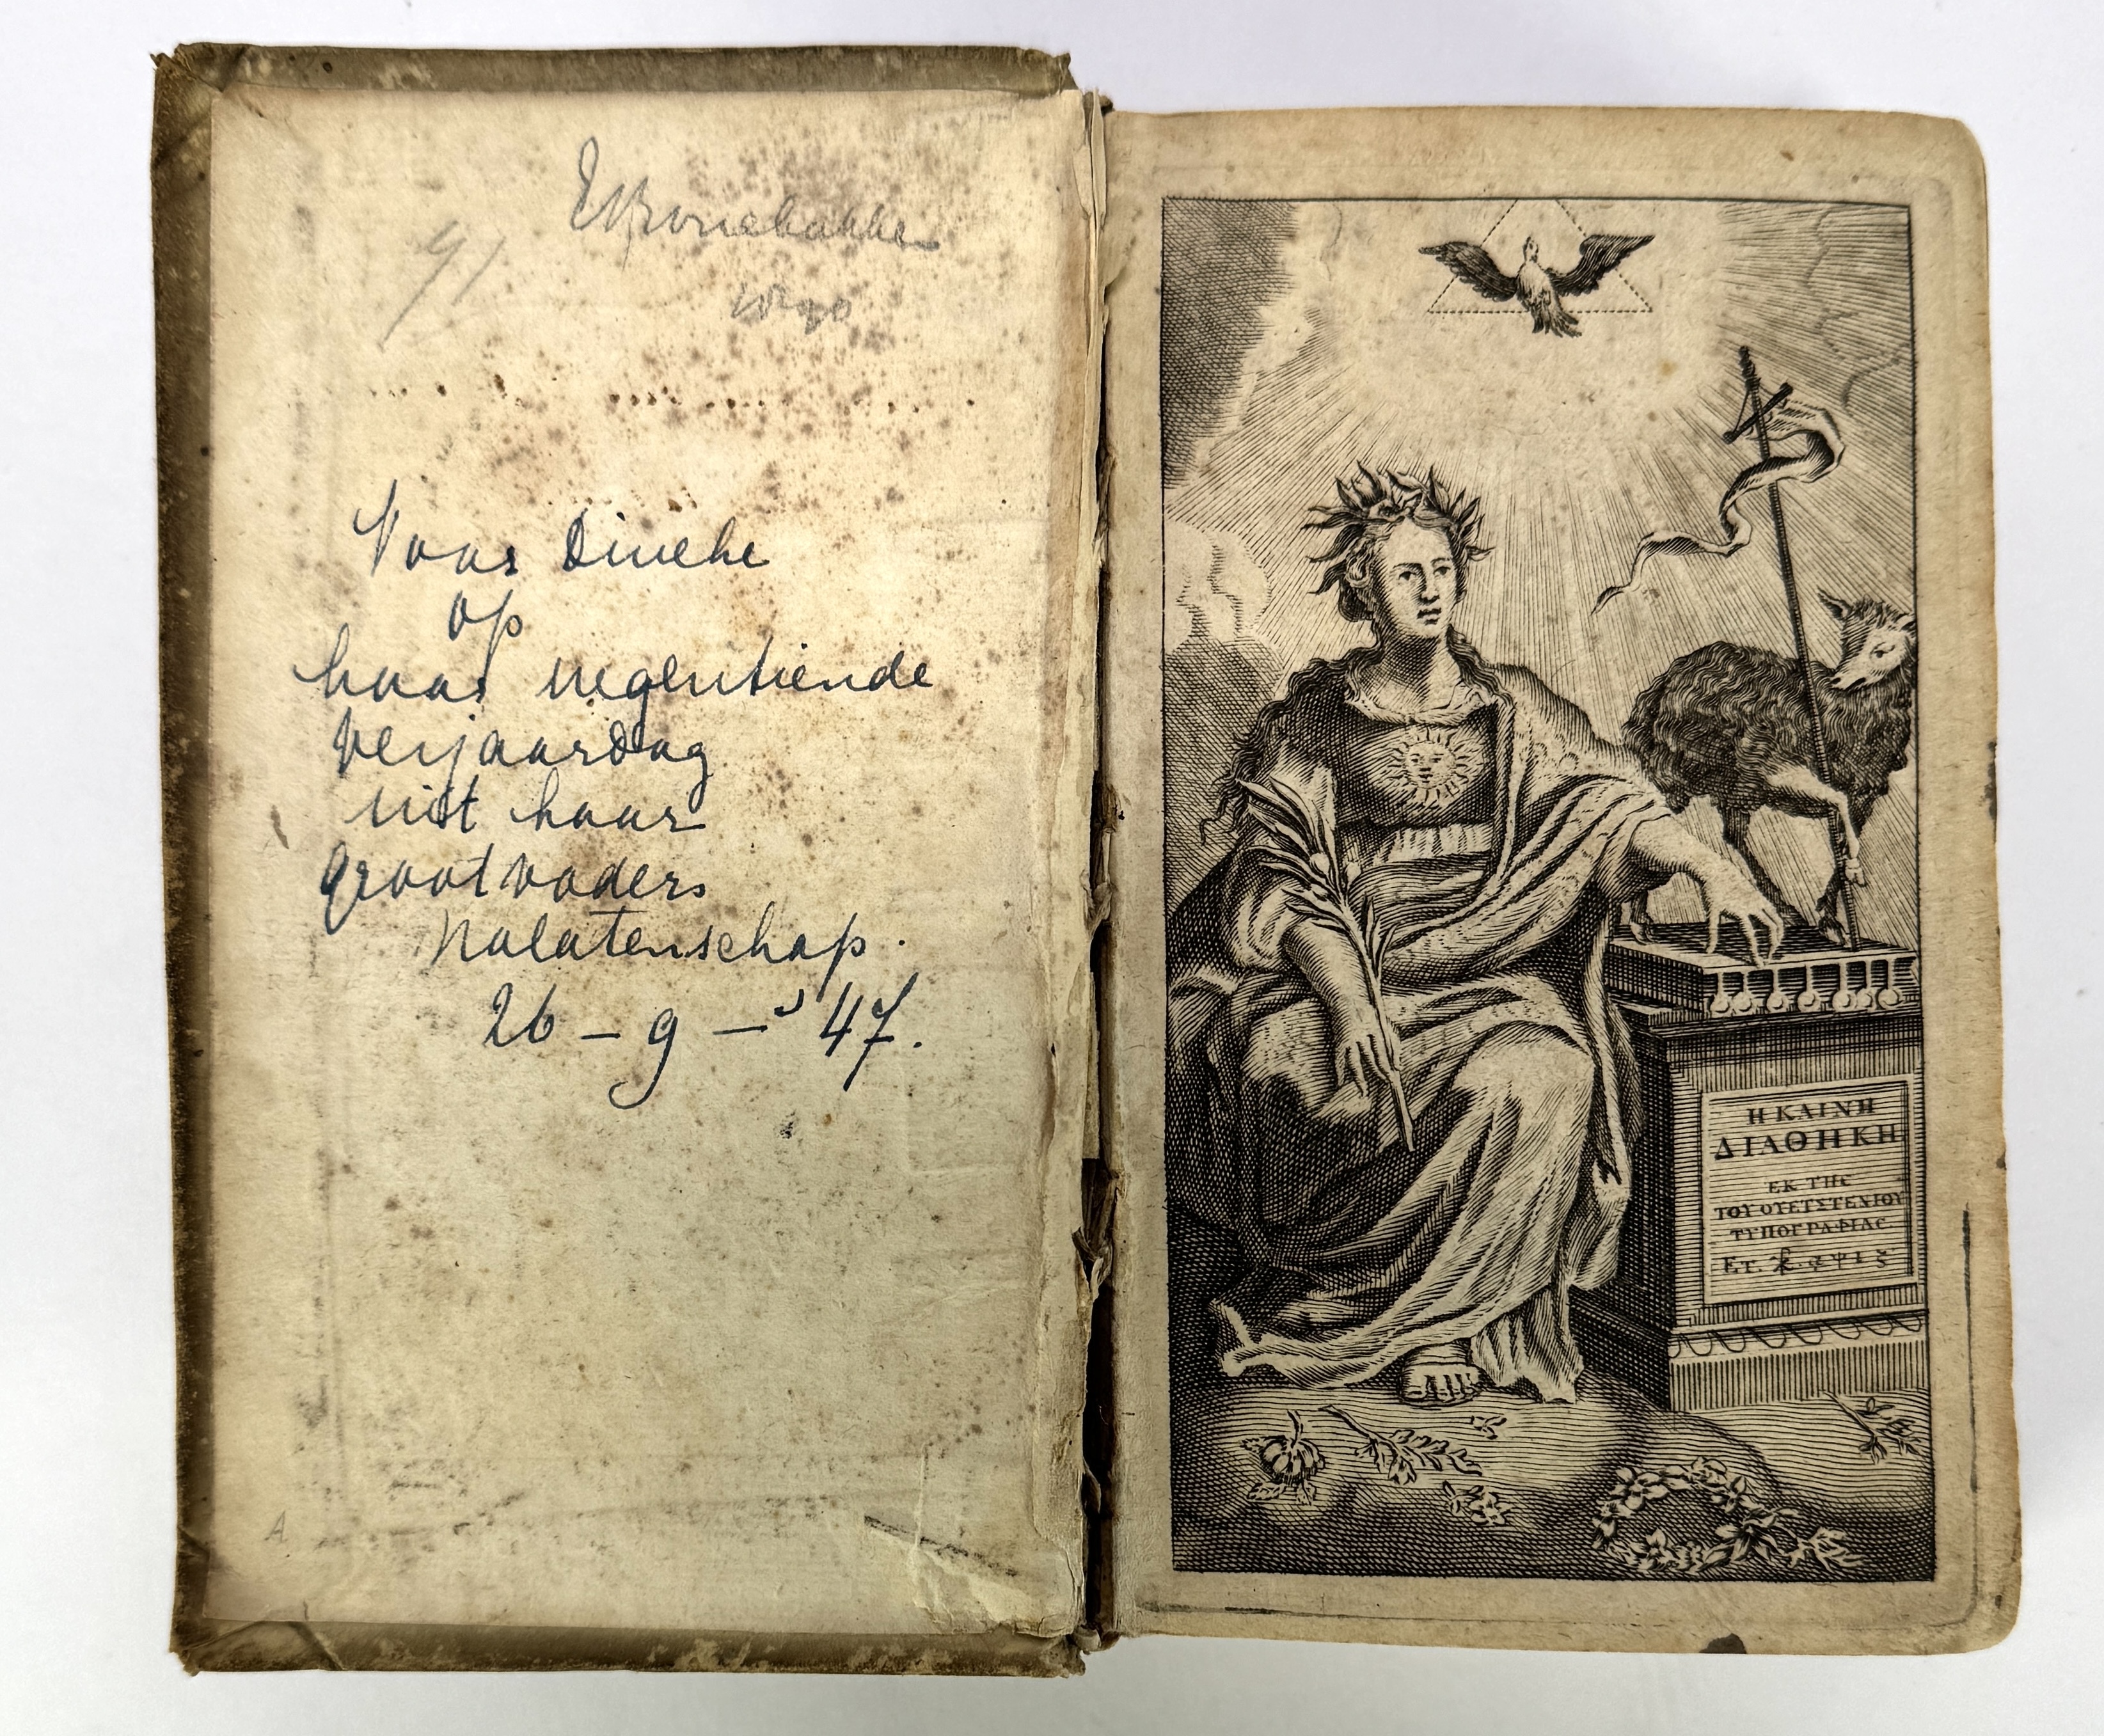 91
Voor Dineke
op
haar negentiende
verjaardag
uit haar
grootvaders
Nalatenschap.
26 – 9 – '47.
A
Η ΚΑΙΝΗ
ΔΙΑΘΗΚΗ
ΕΚ ΤΗϹ
ΤΟΥ ΟΥΕΤΣΤΕΝΙΟΥ
ΤΥΠΟΓΡΑΦΙΑϹ.
ΕΤ.